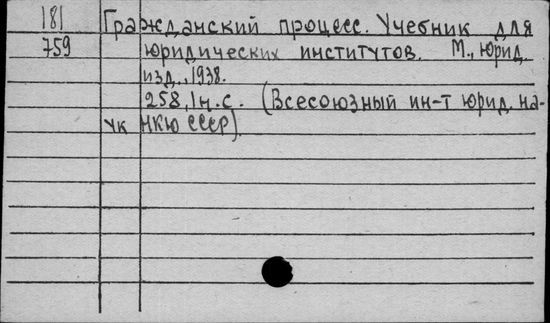 181 Гражданский процесс. Учебник для
759 юридических институтов. М., юрид.
изд., 1938.
258, 1 н. с. (Всесоюзный ин-т юрид. на-
ук НКЮ СССР)